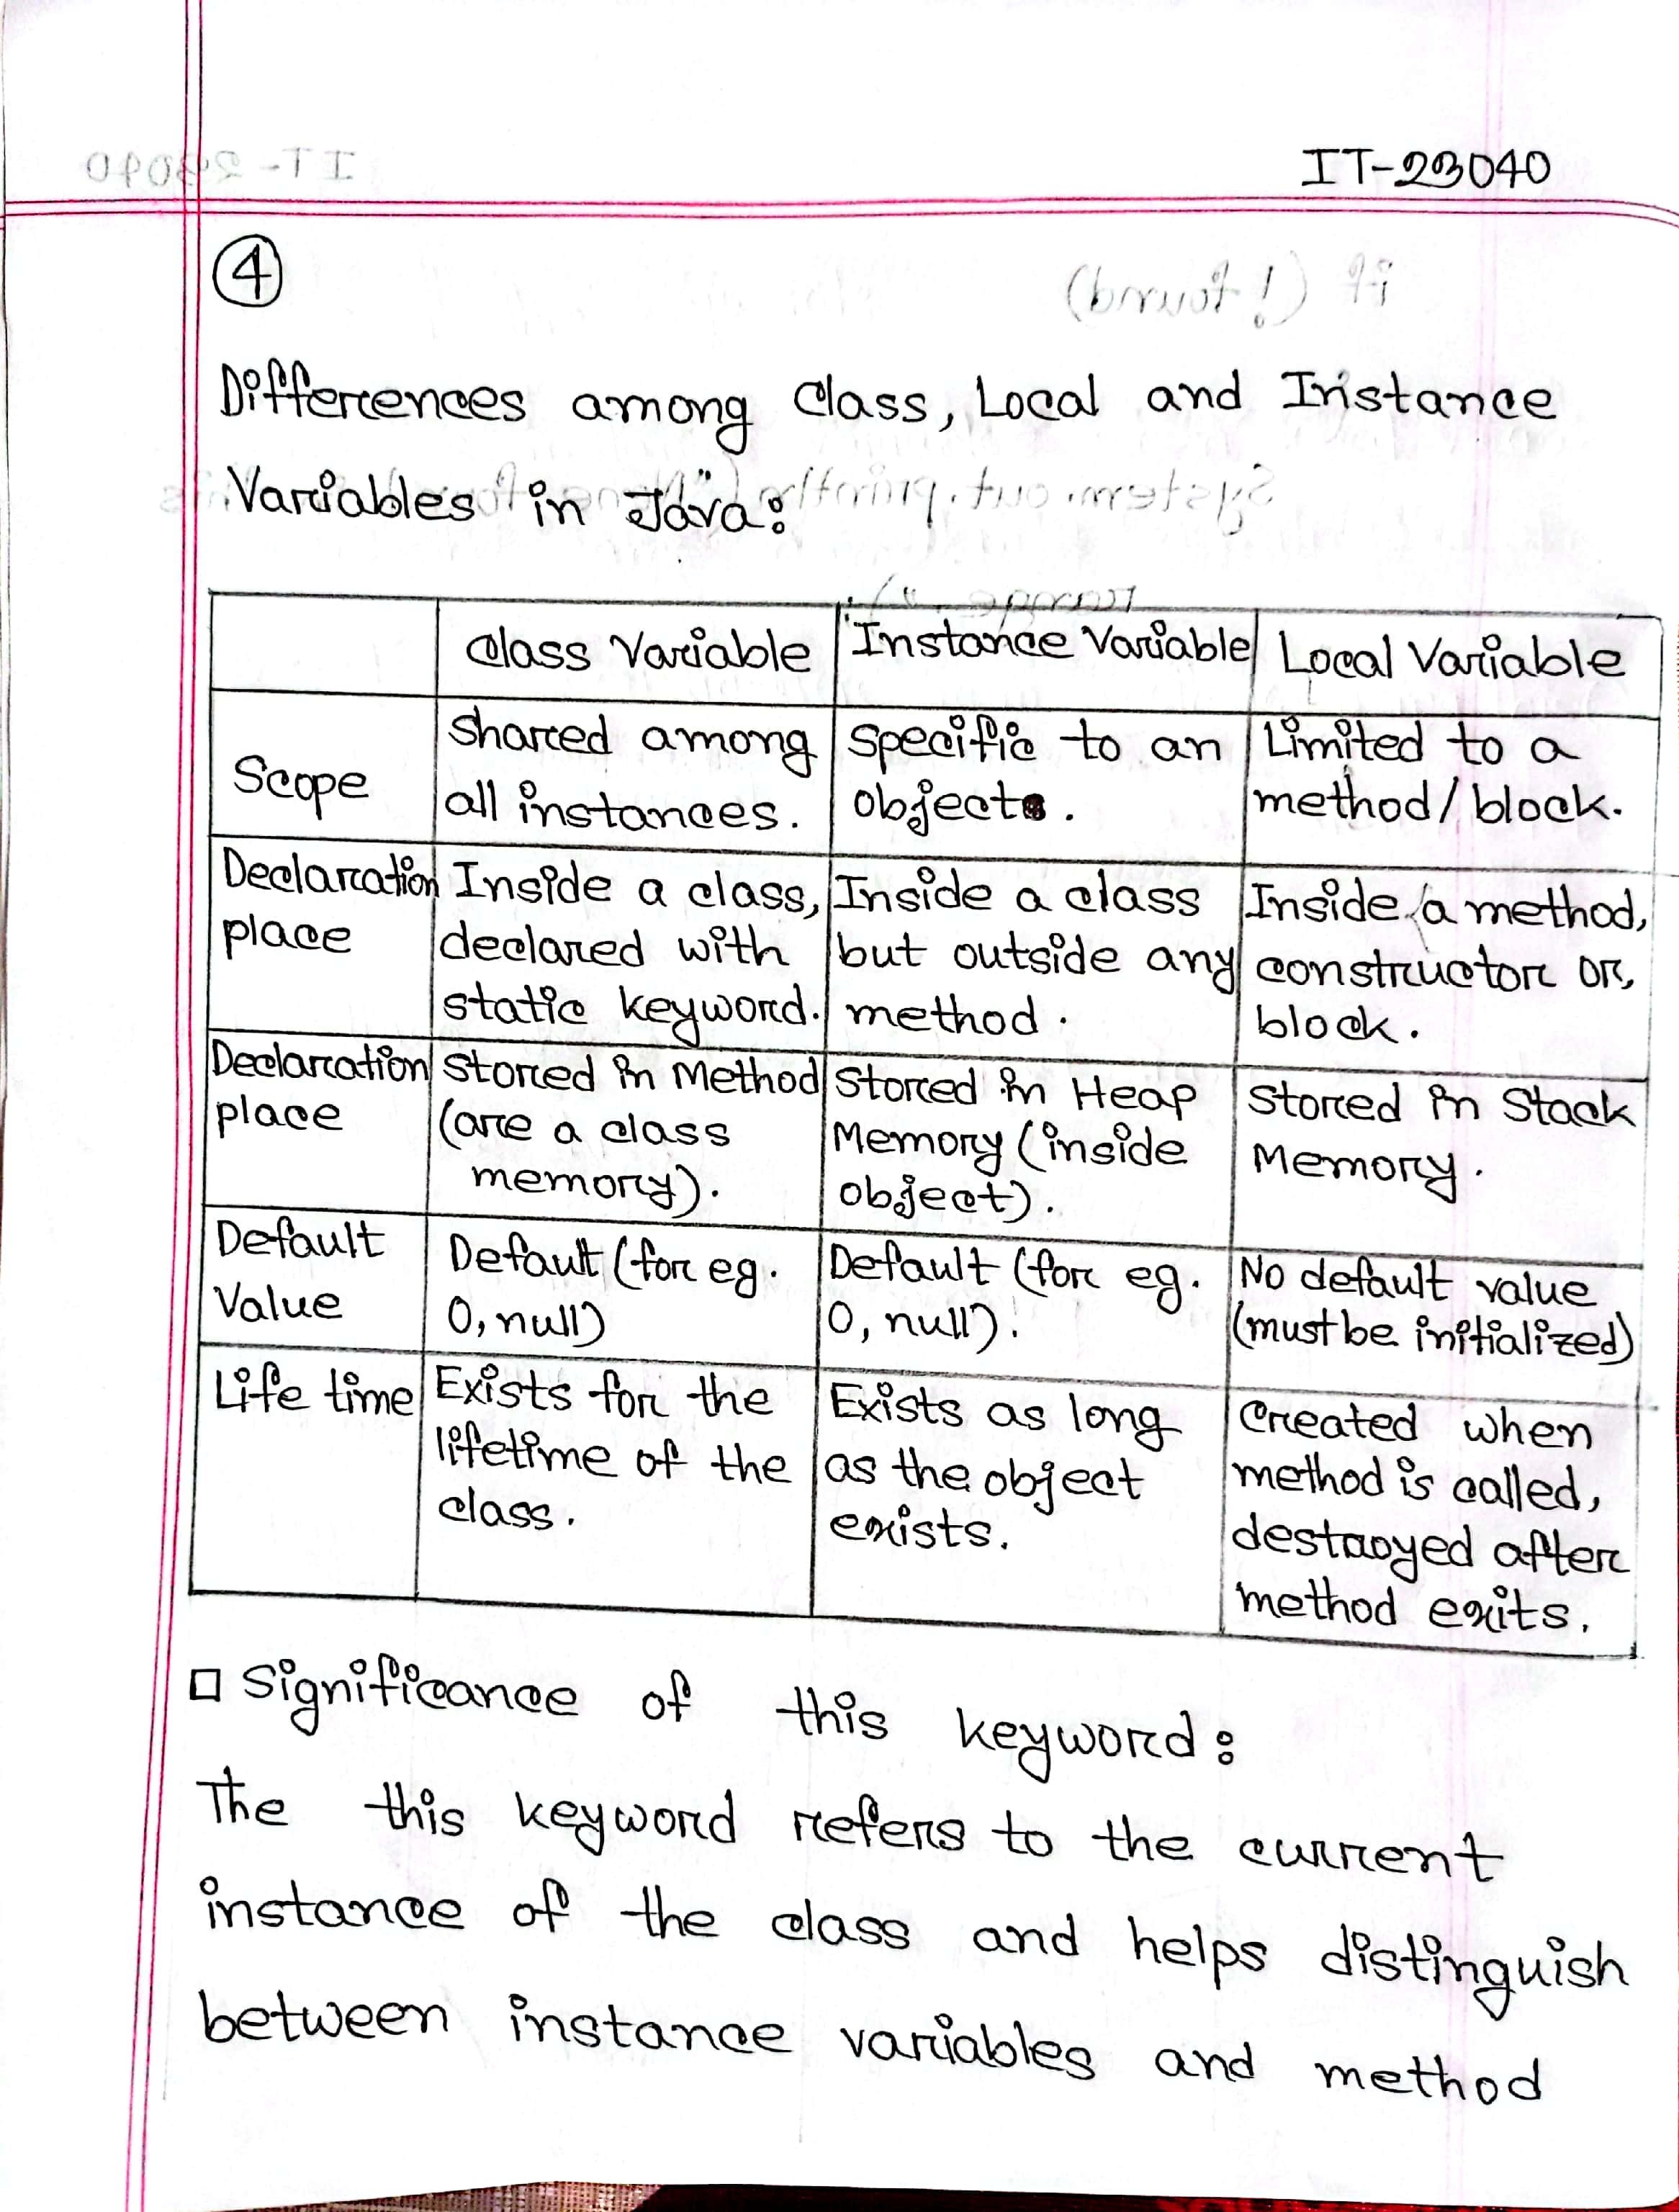 IT-23040
4
Differences among Class, Local and Instance
Variables in Java:
Class Variable | Instance Variable | Local Variable
Scope | Shared among all instances. | Specific to an object. | Limited to a method/block.
Declaration place | Inside a class, declared with static keyword. | Inside a class but outside any method. | Inside a method, constructor or, block.
Declaration place | Stored in Method (are a class memory). | Stored in Heap Memory (inside object). | Stored in Stack Memory.
Default Value | Default (for eg. 0, null) | Default (for eg. 0, null). | No default value (must be initialized)
Life time | Exists for the lifetime of the class. | Exists as long as the object exists. | Created when method is called, destroyed after method exits.
□ Significance of this keyword:
The this keyword refers to the current
instance of the class and helps distinguish
between instance variables and method